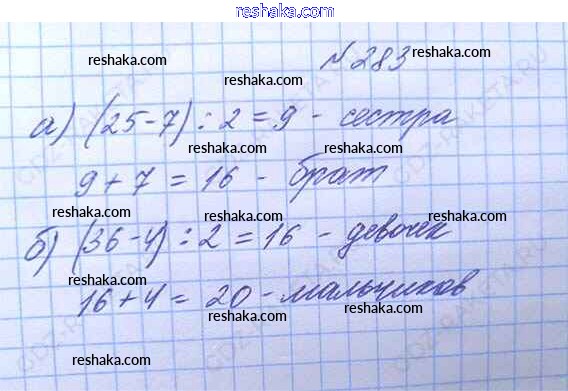 reshaka.com
№ 283 reshaka.com
reshaka.com
reshaka.com
а) (25-7) : 2 = 9 - сестра
reshaka.com reshaka.com
9 + 7 = 16 - брат
reshaka.com reshaka.com
б) (36-4) : 2 = 16 - девочек
reshaka.com reshaka.com
16 + 4 = 20 - мальчиков
reshaka.com reshaka.com
reshaka.com reshaka.com